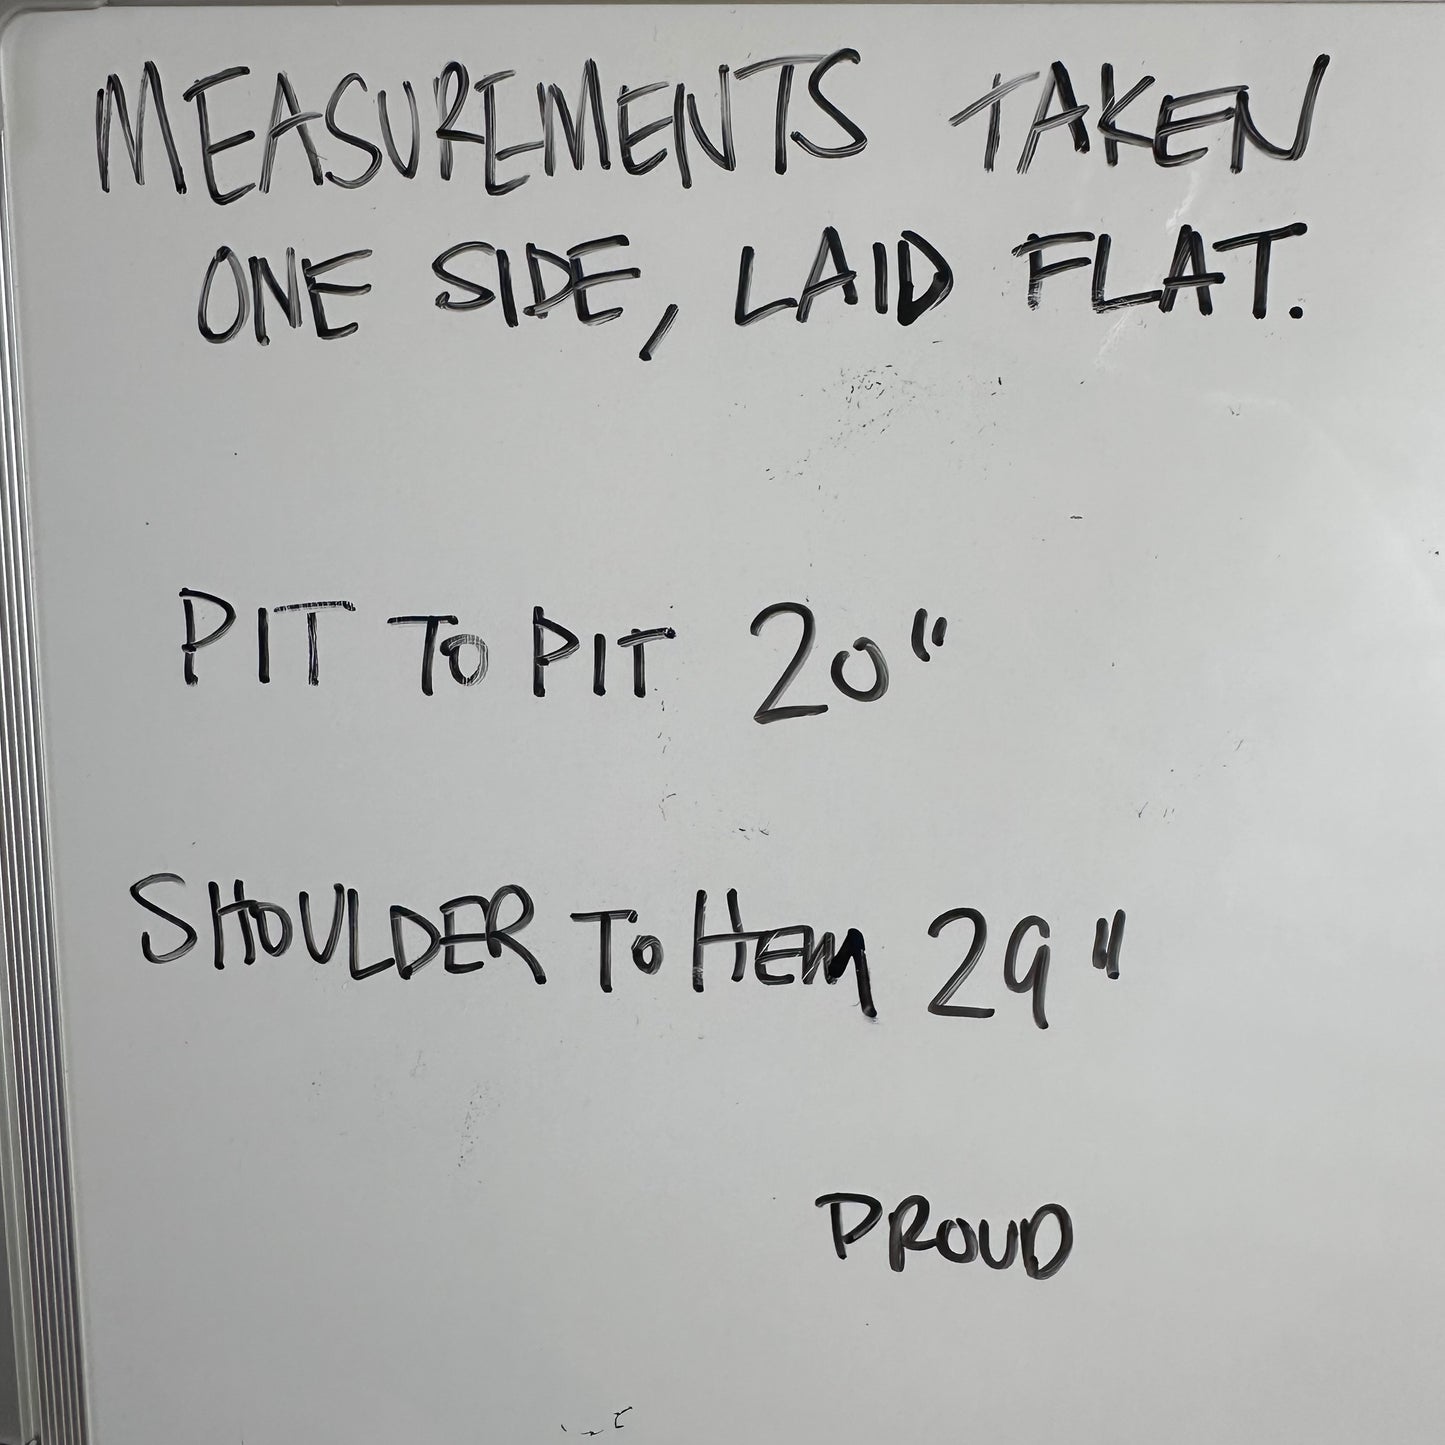 MEASUREMENTS TAKEN
ONE SIDE, LAID FLAT.
PIT TO PIT 20"
SHOULDER TO HEM 29"
PROUD